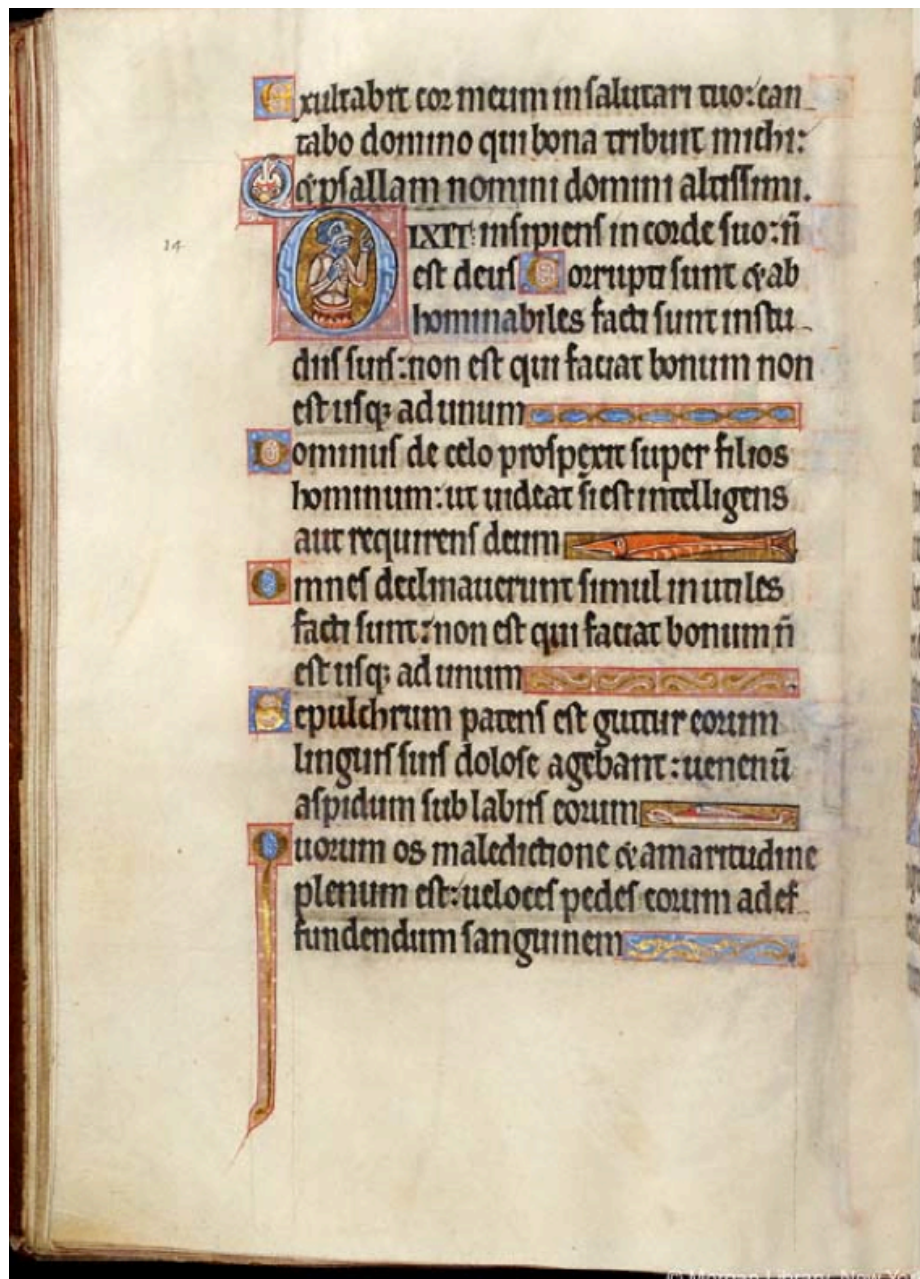 Exultabit cor meum in salutari tuo: can
tabo domino qui bona tribuit michi:
& psallam nomini domini altissimi.
DIXIT insipiens in corde suo: n̄
est deus Corrupti sunt & ab
hominabiles facti sunt in stu
diis suis: non est qui faciat bonum non
est usq; ad unum
Dominus de celo prospexit super filios
hominum: ut uideat si est intelligens
aut requirens deum
Omnes declinauerunt simul inutiles
facti sunt: non est qui faciat bonum n̄
est usq; ad unum
Sepulchrum patens est guttur eorum
linguis suis dolose agebant: uenenū
aspidum sub labiis eorum
Quorum os maledictione & amaritudine
plenum est: ueloces pedes eorum ad ef
fundendum sanguinem
© Morgan Library, New York